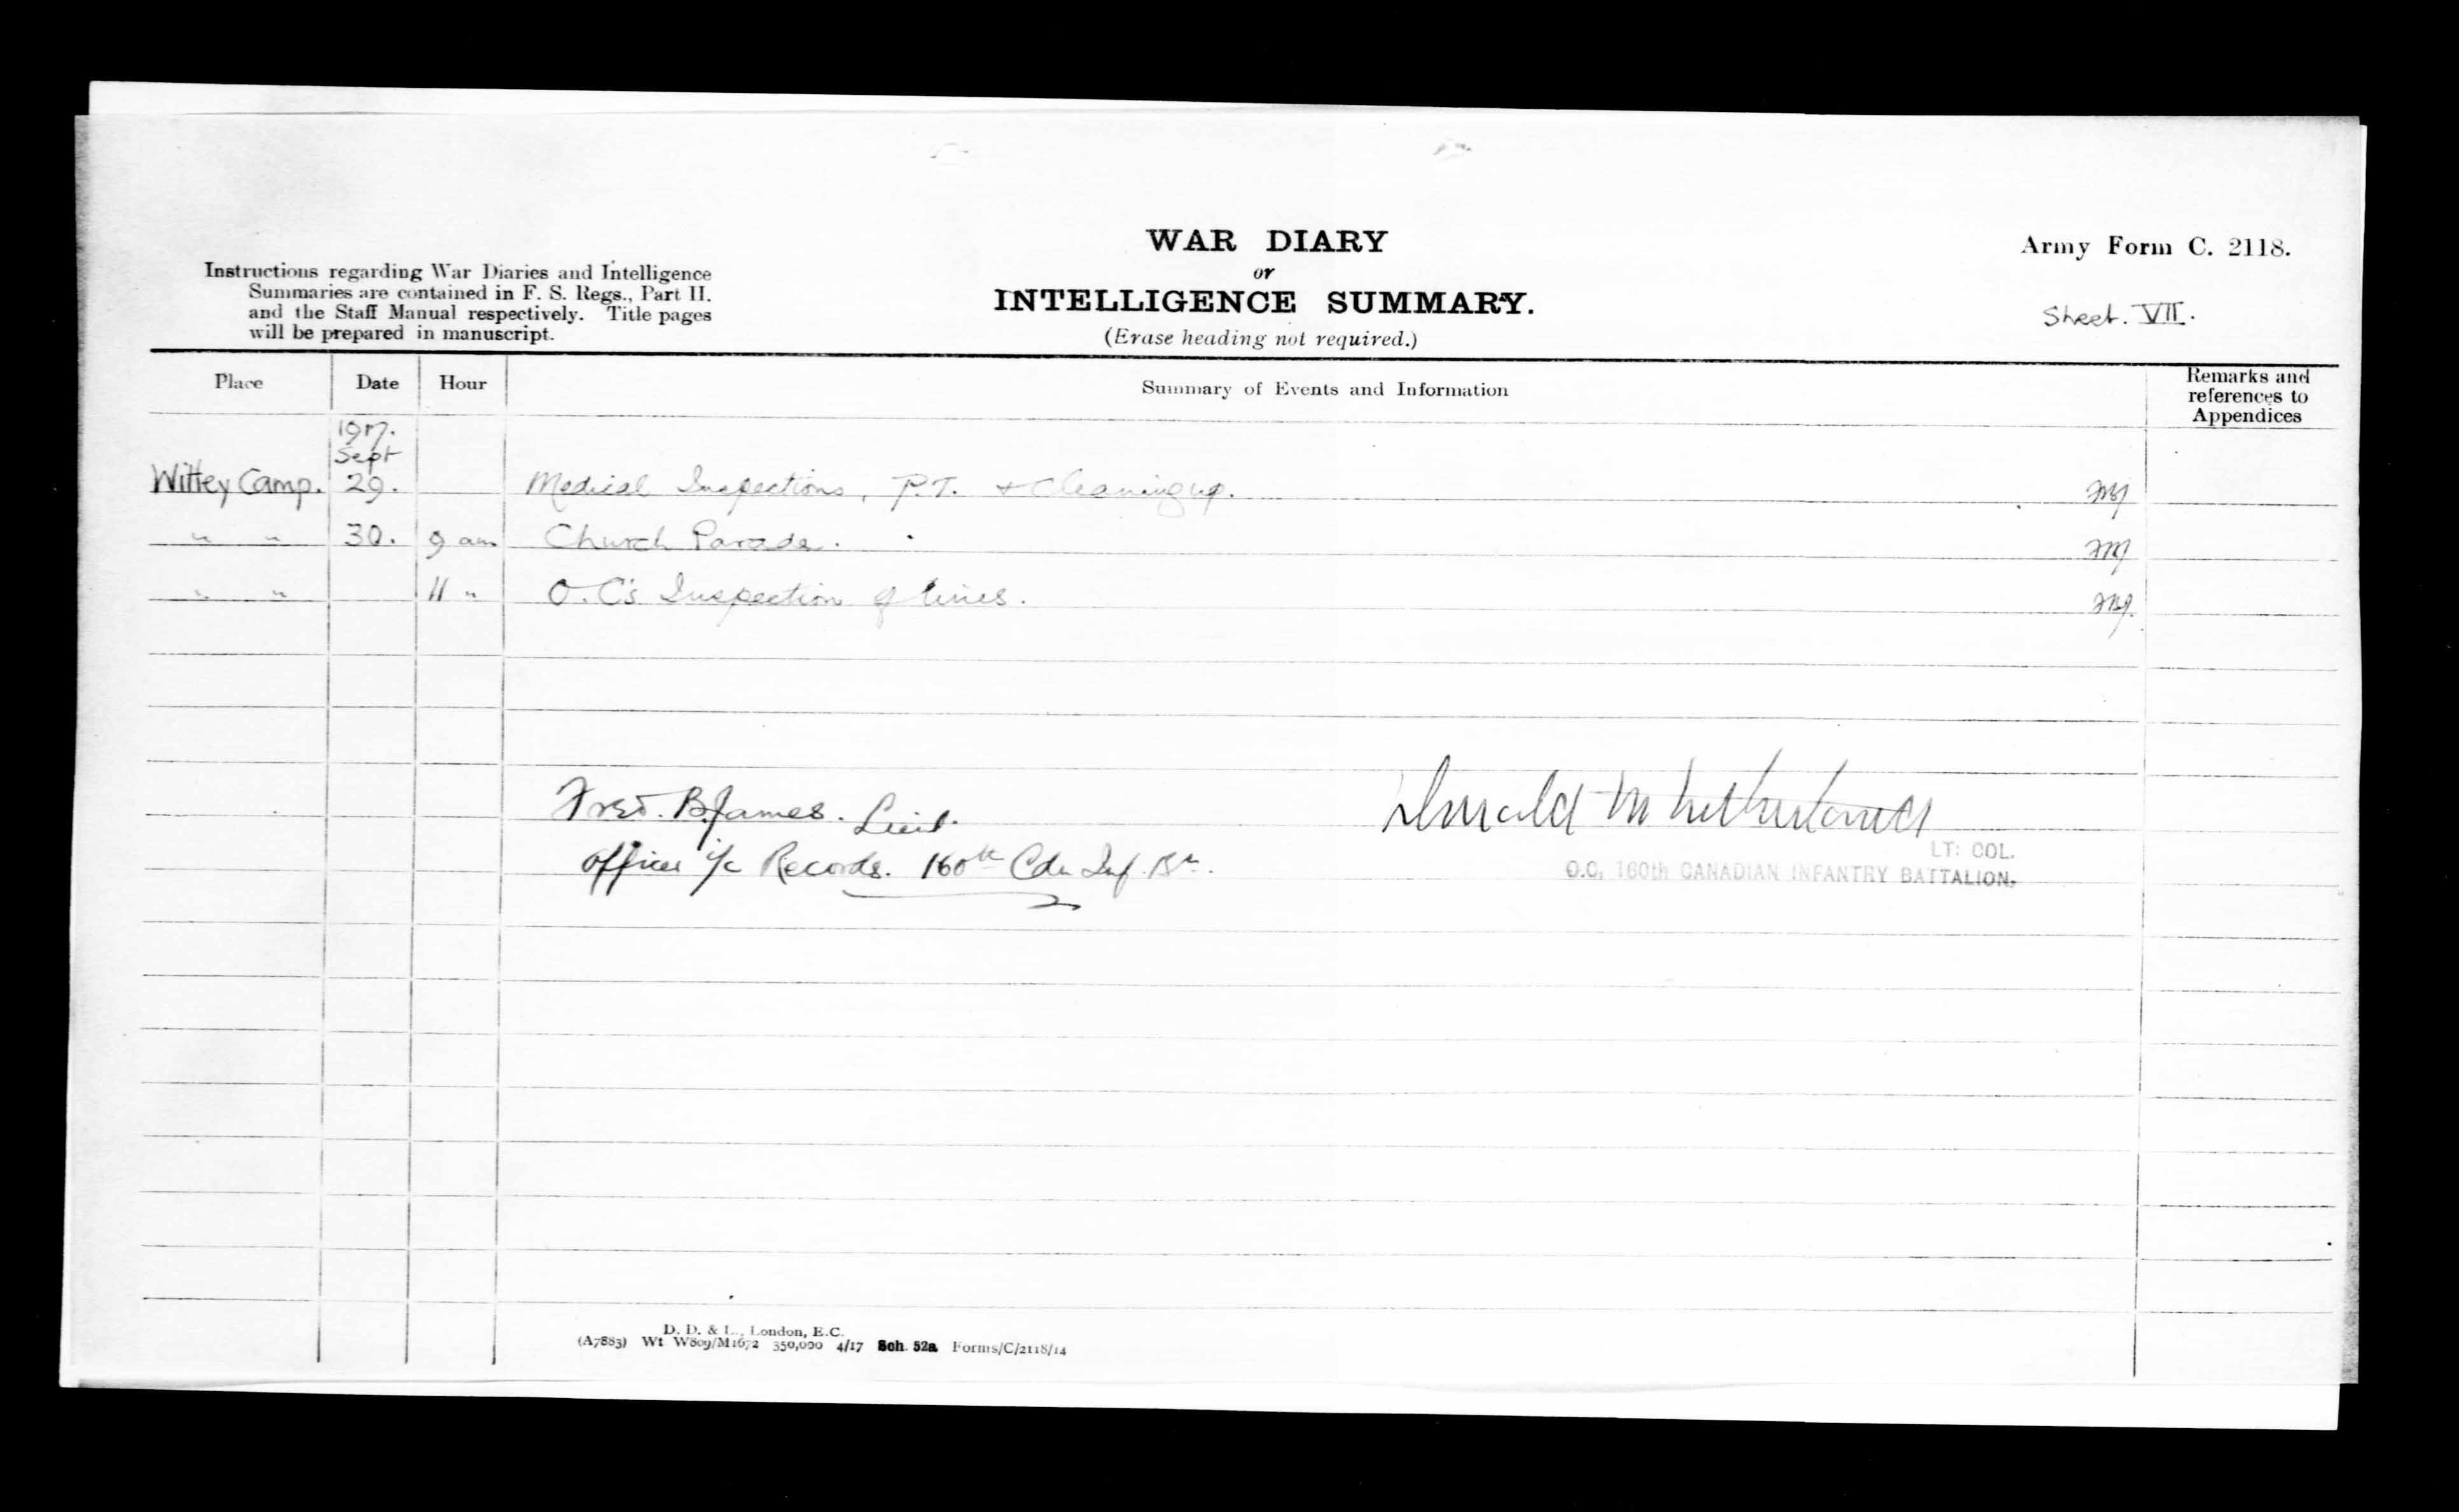 WAR DIARY
or
INTELLIGENCE SUMMARY.
(Erase heading not required.)
Instructions regarding War Diaries and Intelligence
Summaries are contained in F. S. Regs., Part II.
and the Staff Manual respectively. Title pages
will be prepared in manuscript.
Army Form C. 2118.
Sheet. VII.
Place Date Hour Summary of Events and Information Remarks and references to Appendices
1917.
Sept
Witley Camp. 29. Medical Inspections, P.T. + Cleaning up. FBJ
" " 30. 9 am Church Parade. FBJ
" " 11 " O.C's Inspection of lines. FBJ
Fred. B. James. Lieut.
Officer i/c Records. 160th Cdn Inf. Bn.
Donald M
LT: COL.
O.C. 160th CANADIAN INFANTRY BATTALION.
D. D. & L., London, E.C.
(A7883) Wt W809/M1672 350,000 4/17 Sch. 52a Forms/C/2118/14